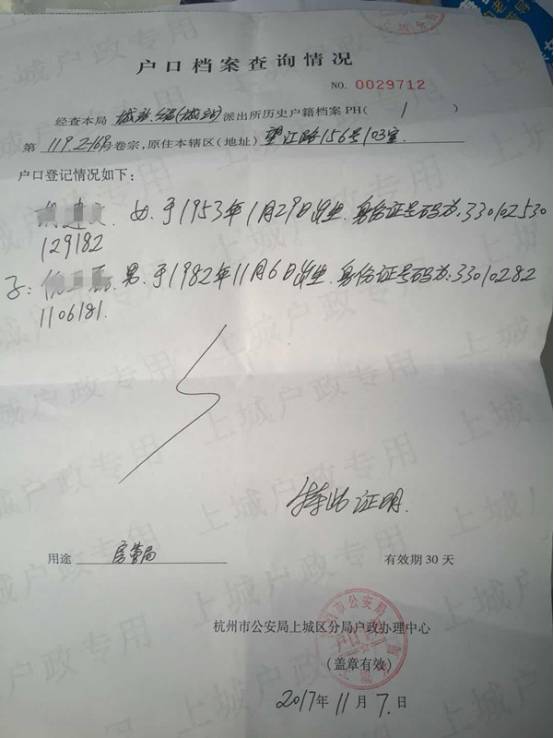 户口档案查询情况
NO. 0029712
经查本局 (城站) 派出所历史户籍档案PH( 1 )
第 卷宗,原住本辖区(地址) 望江路156号103室.
户口登记情况如下:
女.于1953年1月29日出生.身份证号码为:330102530
129182
子: 男.于1982年11月6日出生.身份证号码为:33010282
1106181.
特此证明.
用途 房管局 有效期30天
杭州市公安局上城区分局户政办理中心
(盖章有效)
2017年11月7日
上城户政专用